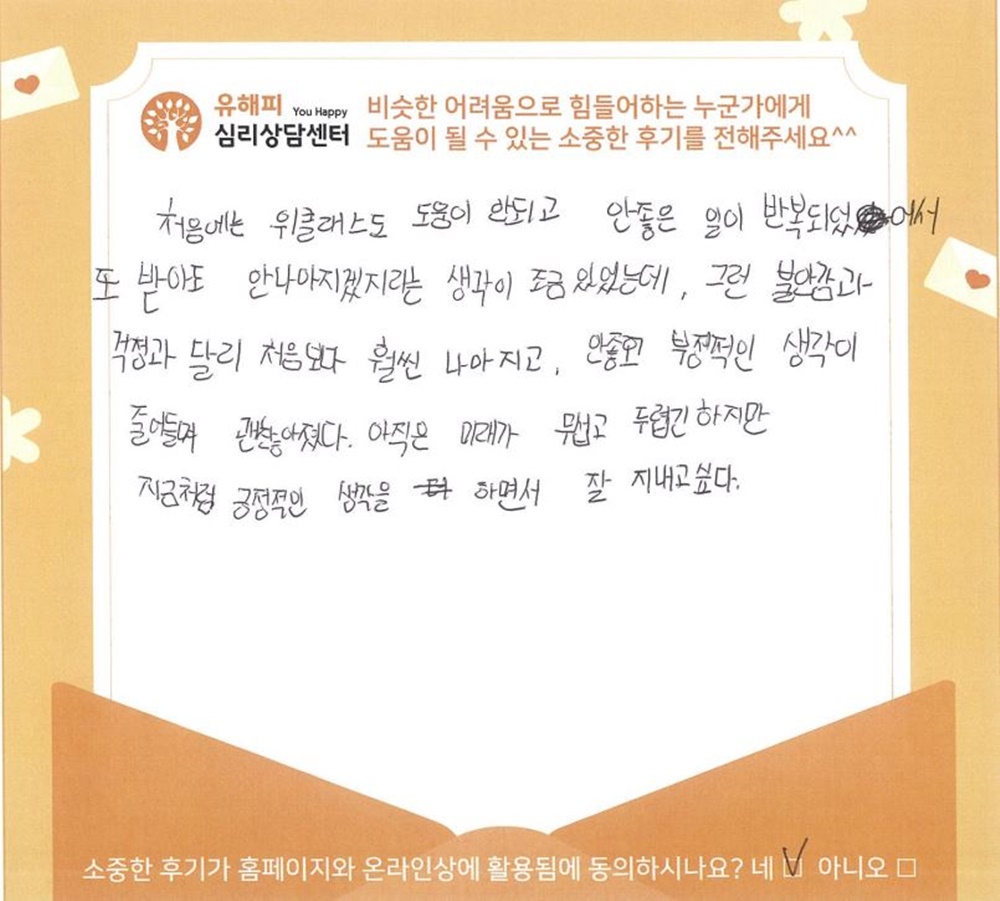 유해피 You Happy
심리상담센터
비슷한 어려움으로 힘들어하는 누군가에게
도움이 될 수 있는 소중한 후기를 전해주세요^^
처음에는 위클래스도 도움이 안되고 안좋은 일이 반복되었어서
또 받아도 안나아지겠지라는 생각이 조금 있었는데, 그런 불안감과
걱정과 달리 처음보다 훨씬 나아지고, 안좋고 부정적인 생각이
줄어들며 괜찮아졌다. 아직은 미래가 무섭고 두렵긴 하지만
지금처럼 긍정적인 생각을 하면서 잘 지내고싶다.
소중한 후기가 홈페이지와 온라인상에 활용됨에 동의하시나요? 네 ☑ 아니오 □